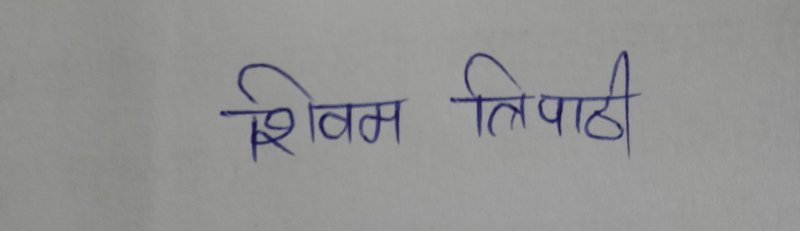 शिवम त्रिपाठी